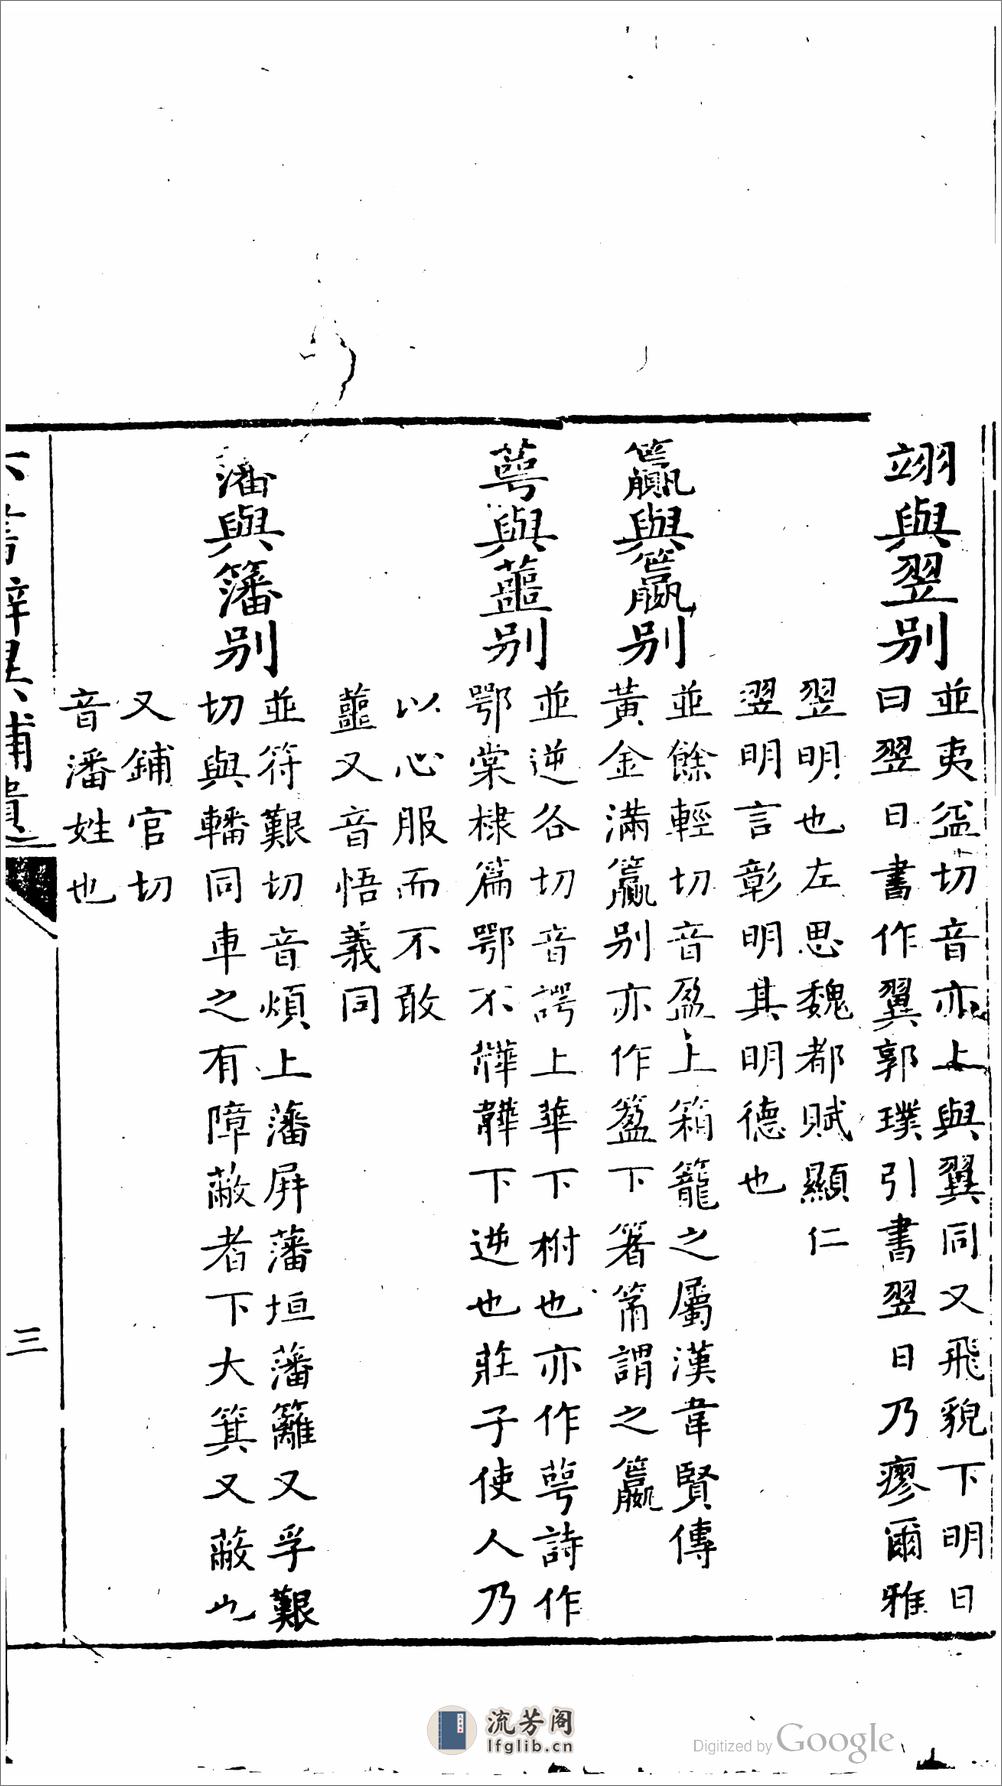 翊與翌别
並夷益切音亦上與翼同又飛貌下明日
曰翌日書作翼郭璞引書翌日乃瘳爾雅
翌明也左思魏都賦顯仁
翌明言彰明其明德也
籝與籯别
並餘輕切音盈上箱籠之屬漢韋賢傳
黃金滿籝别亦作籯下箸筩謂之籯
萼與蘁别
並逆各切音諤上華下柎也亦作蕚詩作
鄂棠棣篇鄂不韡韡下逆也莊子使人乃
以心服而不敢
蘁又音悟義同
藩與籓别
並符艱切音煩上藩屏藩垣藩籬又孚艱
切與轓同車之有障蔽者下大箕又蔽也
又鋪官切
音潘姓也
辨異補遺
三
流芳阁
lfglib.cn
Digitized by Google